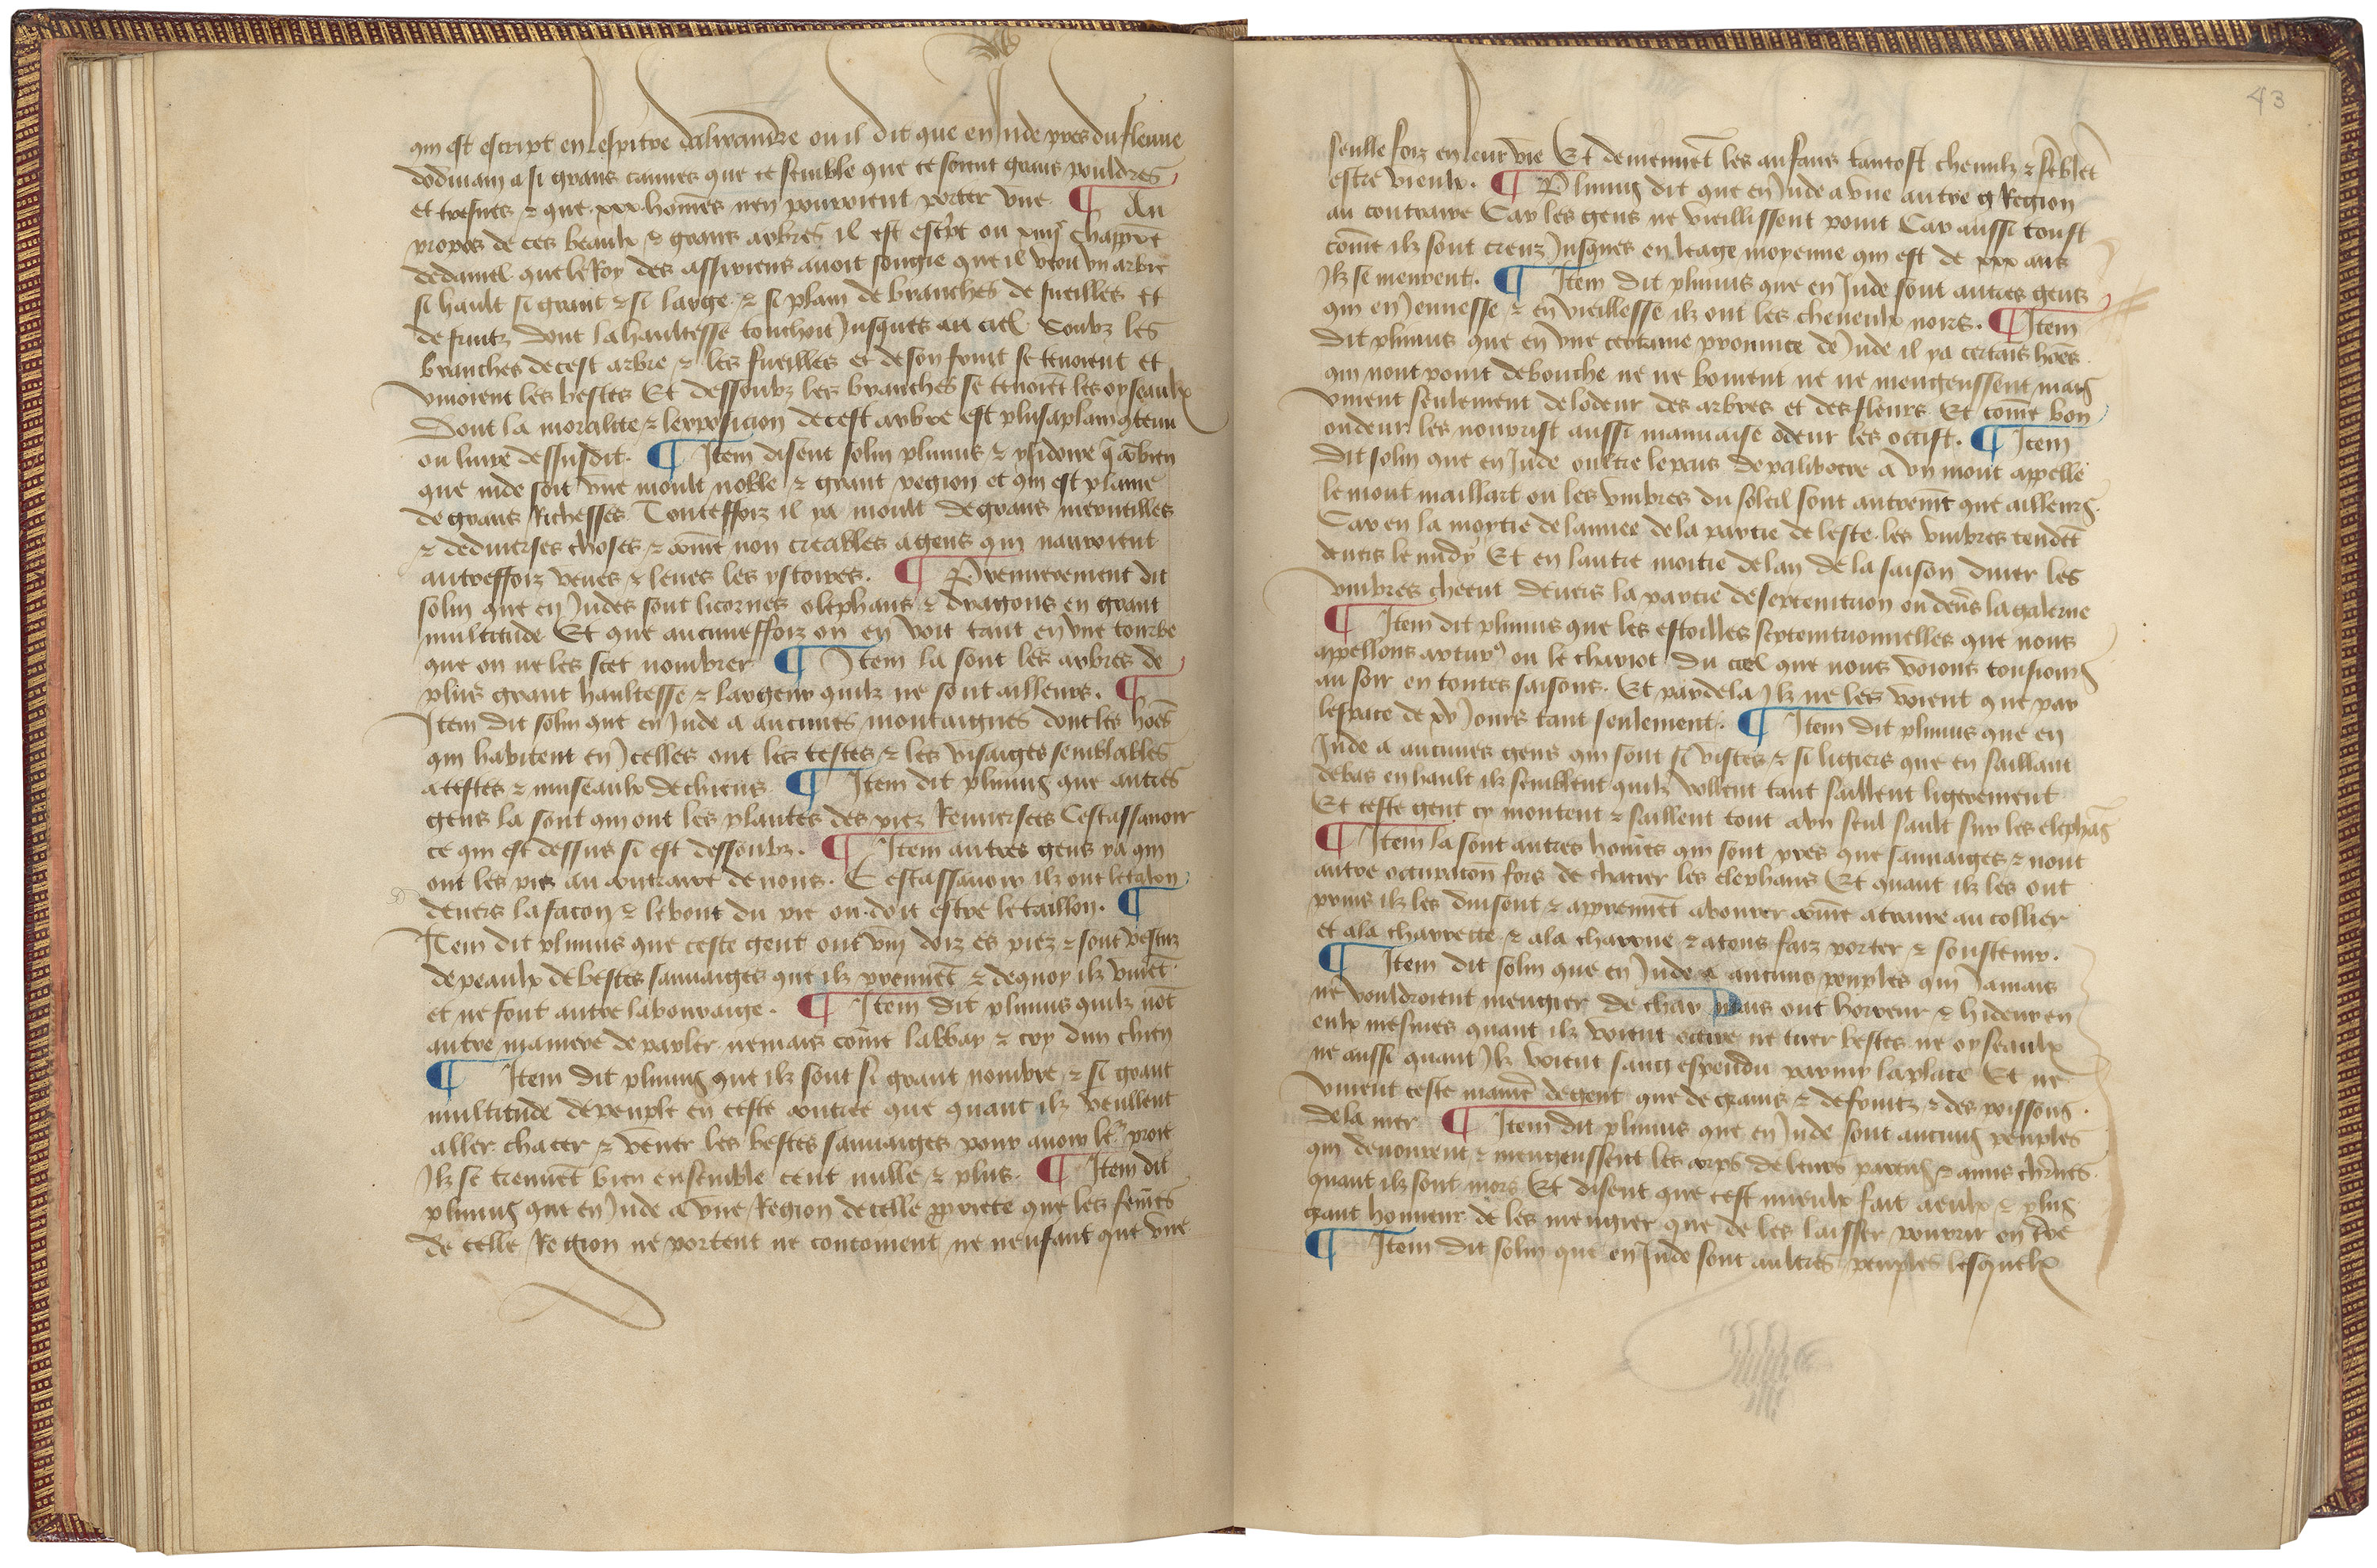 qui est escript en lespitre dalixandre ou il dit que en Inde pres du fleuue
dodmam a si grans cannes que ce semble que ce soient grans pouldres
et tresnes ⁊ que .xxx. hom̃es nen pouroient porter vne ¶ Au
propos de ces beaulx ⁊ grans arbres il est escr̃pt ou chapp̃e
de daniel que le Roy des assiriens auoit songie que il veou vn arbre
si hault si grant ⁊ si large ⁊ si plain de branches de fueilles et
de fruitz dont la haultesse touchoit Jusques au ciel Soubz les
branches de cest arbre ⁊ les fueilles et de son fruit se tenoient et
viuoient les bestes Et dessoubz les branches se tenoiẽt les oyseaulx
Dont la moralite ⁊ lexposicion de cest arbre est plus a plain ꝯtenu
ou liure dessusdit. ¶ Item disent solin plinius ⁊ ysidoire q̃ cõbien
que inde soit vne moult noble ⁊ grant region et qui est plaine
de grans Richesses Touteffoiz il ya moult de grans merueilles
⁊ de diuerses choses ⁊ com̃e non creables a gens qui nauroient
autreffoiz veues ⁊ leues les ystoires. ¶ Premierement dit
solin que en Indes sont licornes elephans ⁊ dragons en grant
multitude Et que aucuneffoiz on en voit tant en vne tourbe
que on ne les scet nombrer ¶ Item la sont les arbres de
plus grant haultesse ⁊ largeur quilz ne sont ailleurs. ¶
Item dit solin que en Inde a aucunes montaignes dont les hoẽs
qui habitent en Jcelles ont les testes ⁊ les visaiges semblables
a testes ⁊ museaulx de chiens ¶ Item dit plinius que autres
gens la sont qui ont les plantes des piez Renuersees Cestassauoir
ce qui est dessus si est dessoubz. ¶ Item autres gens ya qui
ont les piez au contraire de nous. Cestassauoir ilz ont le talon
deuers la facon ⁊ le bout du pie ou doit estre le taillon. ¶
Item dit plinius que ceste gent ont viij doiz es piez ⁊ sont vestuz
de peaulx de bestes sauuaiges que ilz prennẽt ⁊ de quoy ilz viuẽt
et ne font autre labouraige. ¶ Item dit plinius quilz nõt
autre maniere de parler nemais com̃e labbay ⁊ cry dun chien
¶ Item dit plinius que ilz sont si grant nombre ⁊ si grant
multitude de peuple en ceste contree que quant ilz veullent
aller chacer ⁊ vener les bestes sauuaiges pour auoir le᷑ proie
Ilz se treuuẽt bien ensemble cent mille ⁊ plus. ¶ Item dit
plinius que en Inde a vne Region de telle ꝓpriete que les fem̃es
de celle Region ne portent ne concoiuent ne nenfant que vne
43
seulle foiz en leur vie Et deuiennẽt les anfans tantost chenulz ⁊ sẽblẽt
estre vieulx. ¶ Plinius dit que en Inde a vne autre Region
au contraire Car les gens ne vieillissent point Car aussi toust
com̃e ilz sont creuz Jusques en leage moyenne qui est de xxx ans
Ilz se meurent. ¶ Item dit plinius que en Inde sont autres gens
qui en Jennesse ⁊ en vieillesse ilz ont les cheueulx noirs. ¶ Item
dit plinius que en vne certaine prouince de Inde il ya certais hoẽs
qui nont point de bouche ne ne boiuent ne ne mengeussent mais
viuent seulement de lodeur des arbres et des fleurs Et com̃e bon
oudeur les nourrist aussi mauuaise odeur les occist. ¶ Item
dit solin que en Inde oultre lepais de palibotre a vn mont appelle
le mont maillart ou les vmbres du soleil sont autremt que ailleurs
Car en la moytie de lannee de la partie de leste les vmbres tendẽt
deuers le midy Et en lautre moitie de lan de la saison diuer les
vmbres cheent deuers la partie de septentrion ou deũs la galerne
¶ Item dit plinius que les estoilles septentrionnelles que nous
appellons arturꝰ ou le chariot du ciel que nous voions tousiours
au soir en toutes saisons. Et pardela Ilz ne les voient que par
lespace de xv Jours tant seulement. ¶ Item dit plinius que en
Inde a aucunes gens qui sont si vistes ⁊ si ligiers que en saillant
debas en hault ilz semblent quilz vollent tant saillent ligierement
Et ceste gent cy montent ⁊ saillent tout a vn seul sault sur les elephãs
¶ Item la sont autres hom̃es qui sont pres que sauuaiges ⁊ nont
autre occupacion fors de chacer les elephans Et quant ilz les ont
prins ilz les duisent ⁊ apprennẽt a bourer com̃e a traire au collier
et ala charrette ⁊ ala charrue ⁊ a tous faiz porter ⁊ soustenir.
¶ Item dit solin que en Inde a aucuns peuples qui Jamais
ne vouldroient mengier de char Mais ont horreur ⁊ hideur en
eulx mesmes quant ilz voient occire ne tuer bestes ne oyseaulx
ne aussi quant Ilz voient sang espendu parmy la place Et ne
viuent ceste manie᷑ de gent que de grains ⁊ de fruitz ⁊ des poissons
de la mer ¶ Item dit plinius que en Inde sont aucuns peuples
qui deuourent ⁊ mengeussent les corps de leurs parens ⁊ amis
quant ilz sont mors Et disent que cest mieulx fait a eulx ⁊ plus
grant honneur de les mengier que de les laisser pourrir en tr̃e
¶ Item dit solin que en Inde sont aultres peuples lesquelx